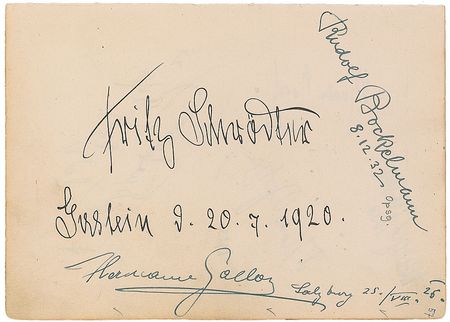 Fritz Schrödter
Gastein d. 20. 7. 1920.
Rudolf Bockelmann
8.12.32
Hermann Gallos
Salzburg 25./VIII. 26.